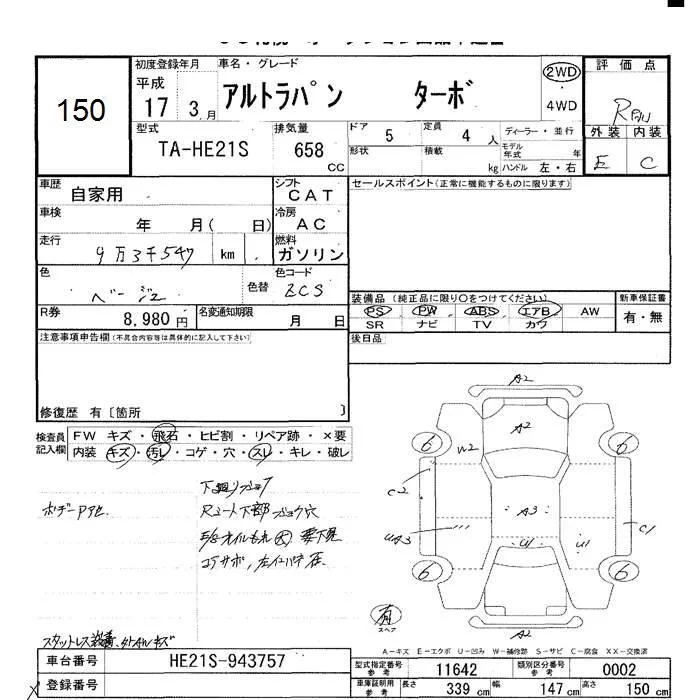 150
初度登録年月
平成
17 3月
車名・グレード
アルトラパン ターボ
2WD
4WD
評価点
R
外装 内装
E C
型式
TA-HE21S
排気量
658
CC
ドア 5
定員 4人
形状
積載 kg
ディーラー・並行
モデル年式 年
ハンドル 左・右
車歴
自家用
シフト
CAT
セールスポイント(正常に機能するものに限ります)
車検
年 月( 日)
冷房
AC
走行
9万3千547 km
燃料
ガソリン
色
ベージュ
色替
色コード
ZCS
装備品 (純正品に限り〇をつけてください)
新車保証書
PS PW ABS エアB AW
有・無
SR ナビ TV カワ
R券
8,980円
名変通知期限
月 日
後日品
注意事項申告欄(不具合内容等は具体的に記入して下さい)
修復歴 有〔箇所 〕
検査員記入欄
FW キズ・飛石・ヒビ割・リペア跡・×要
内装 キズ・汚レ・コゲ・穴・スレ・キレ・破レ
下廻り
ボデーP
下部 穴
オイルもれ 大 要下見
スタットレス装着
A2
A2
W2
6 6
C2
A3
C1
UA3
U1 U1
6 6
A2
有
スペア
A-キズ E-エクボ U-凹み W-補修跡 S-サビ C-腐食 XX-交換済
車台番号
HE21S-943757
型式指定番号参考
11642
類別区分番号参考
0002
登録番号
車庫証明用参考
長さ 339 cm
幅 147 cm
高さ 150 cm